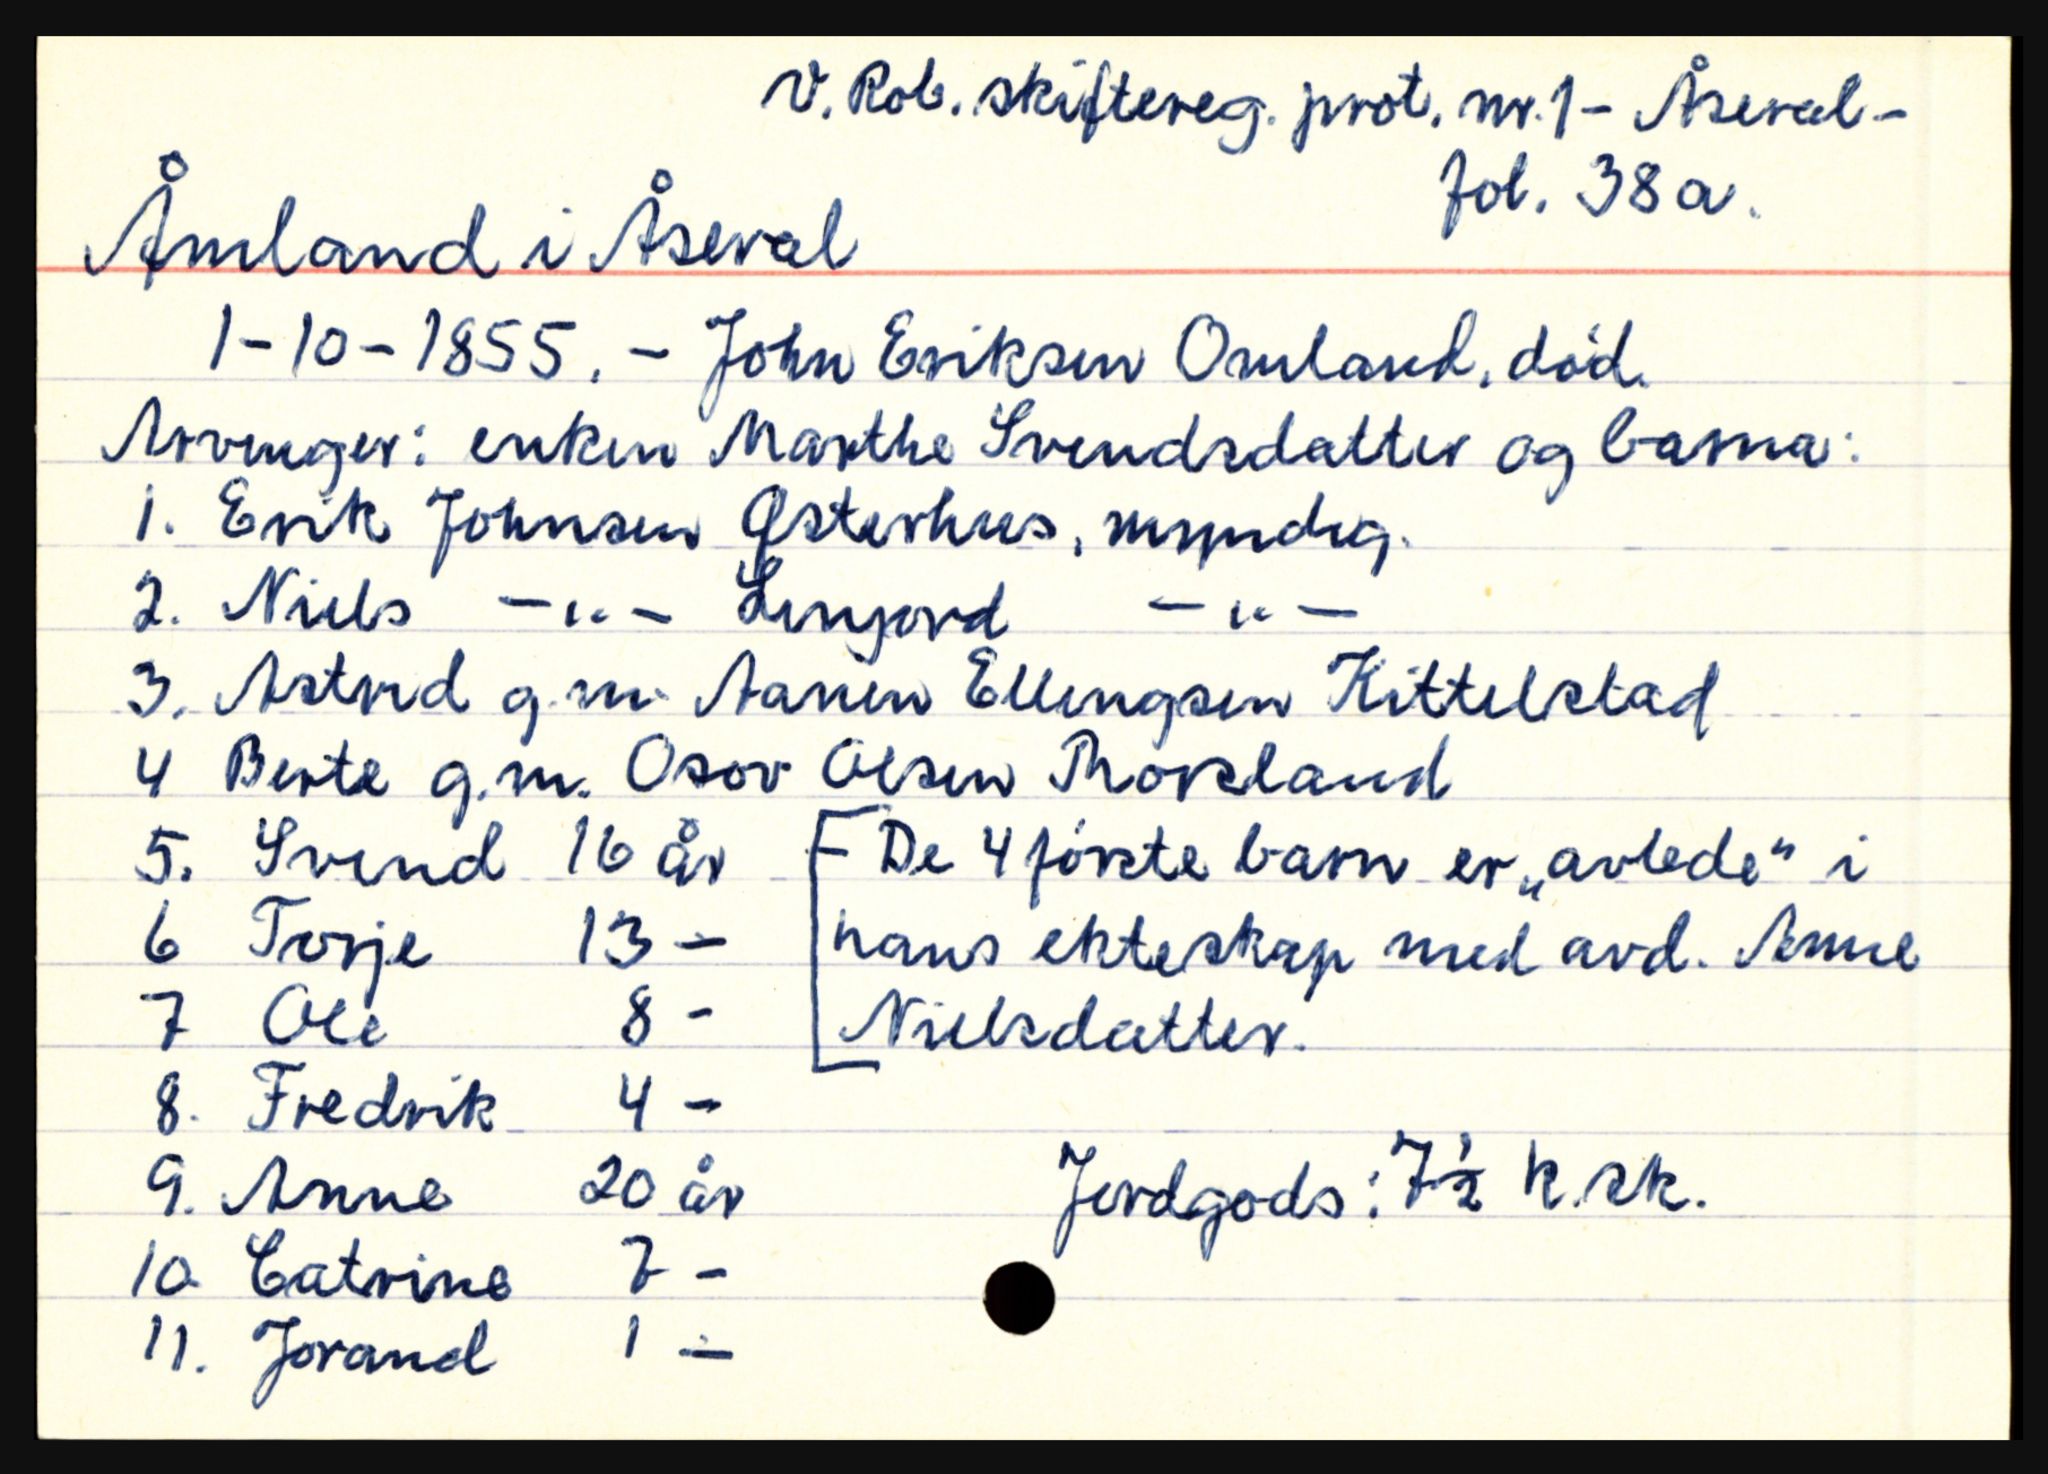 V. Rob. skiftereg. prot. nr. 1 - Åseral -
fol. 38a.
Åmland i Åseral
1-10-1855. - John Eriksen Omland, død.
Arvinger: enken Marthe Svendsdatter og barna:
1. Erik Johnsen Østerhus, myndig.
2. Niels -"- Linjord -"-
3. Astrid g.m. Aanen Ellingsen Kittelstad
4 Berte g.m. Osov Olsen Thorsland
5. Svend 16 år
6 Torje 13 -
7 Ole 8 -
8. Fredrik 4 -
9. Anne 20 år
10 Catrine 7 -
11. Jorand 1 -
De 4 første barn er „avlede“ i
hans ekteskap med avd. Anne
Nielsdatter.
Jordgods: 7½ k.sk.